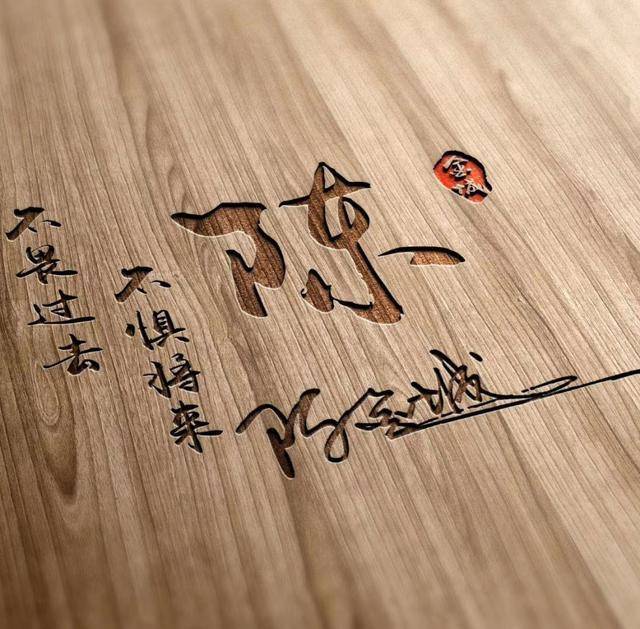 不畏过去
不惧将来
陈
陈金城